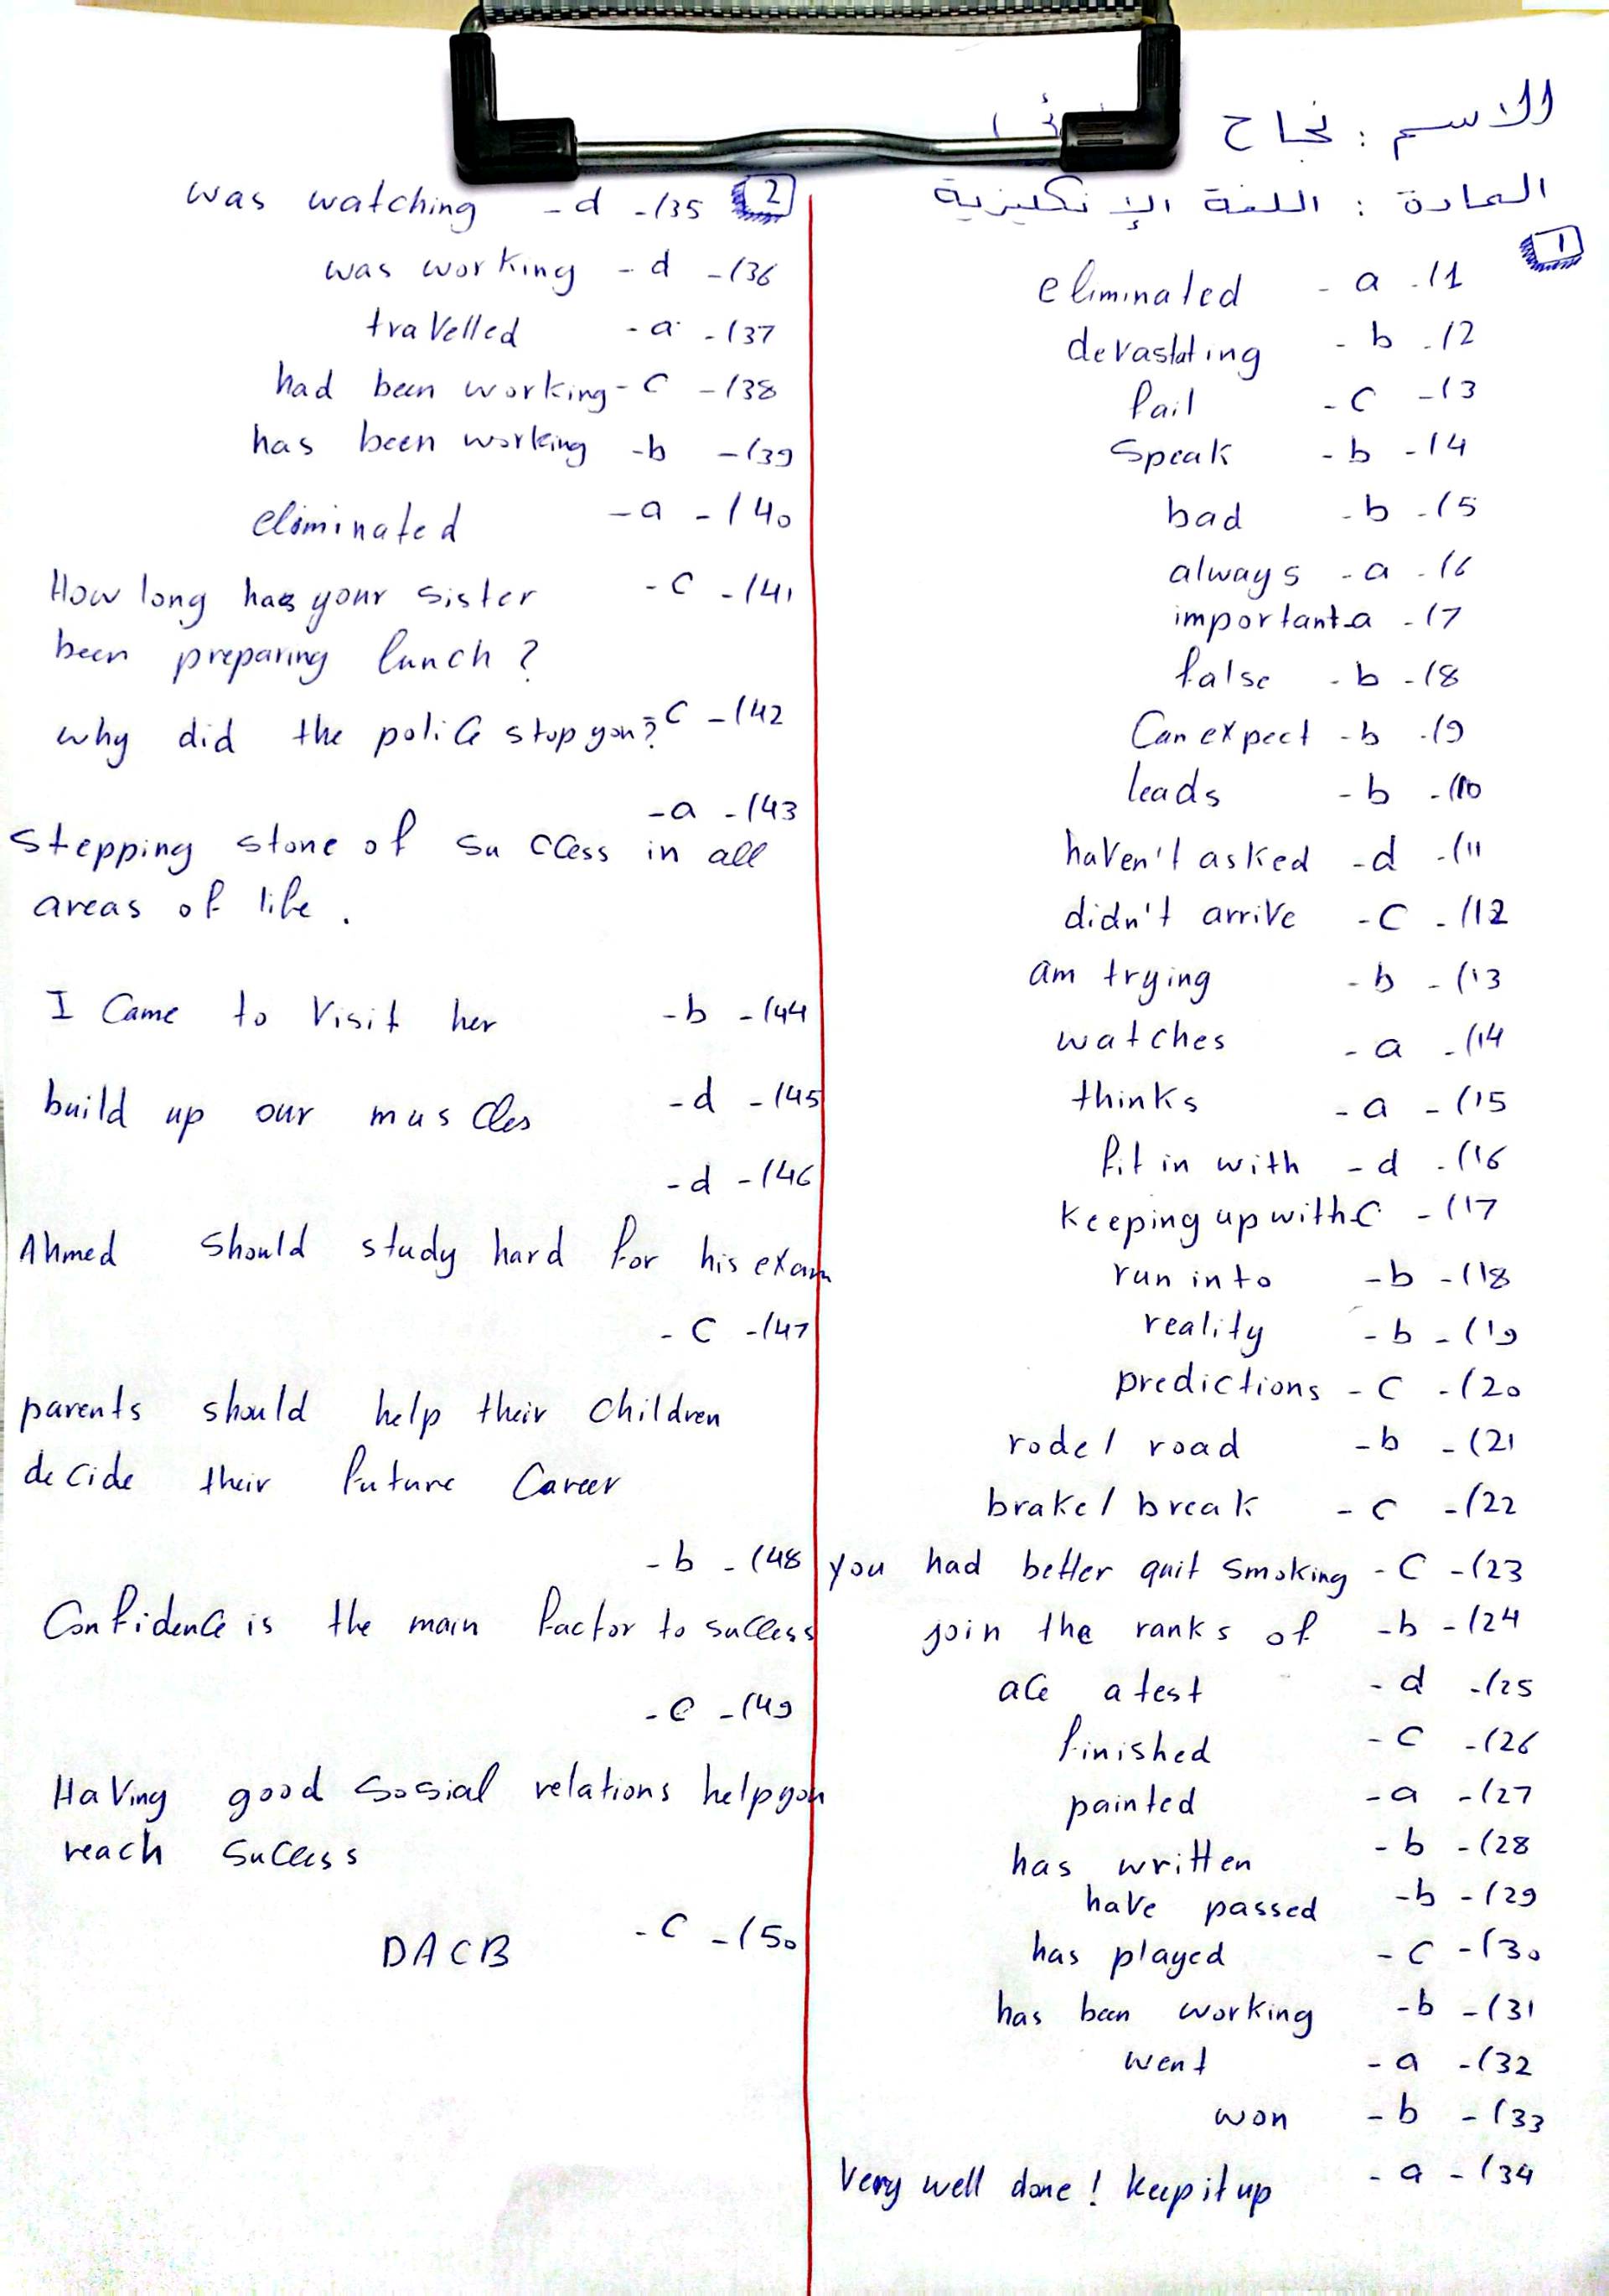 الاسم : نجاح
المادة : اللغة الإنكليزية
1
eliminated - a - (1
devastating - b - (2
fail - c - (3
speak - b - (4
bad - b - (5
always - a - (6
important - a - (7
false - b - (8
Can expect - b - (9
leads - b - (10
haven't asked - d - (11
didn't arrive - c - (12
am trying - b - (13
watches - a - (14
thinks - a - (15
fit in with - d - (16
keeping up with - c - (17
run into - b - (18
reality - b - (19
predictions - c - (20
rode / road - b - (21
brake / break - c - (22
you had better quit smoking - c - (23
join the ranks of - b - (24
ace a test - d - (25
finished - c - (26
painted - a - (27
has written - b - (28
have passed - b - (29
has played - c - (30
has been working - b - (31
went - a - (32
won - b - (33
Very well done! keep it up - a - (34
2
was watching - d - (35
was working - d - (36
travelled - a - (37
had been working - c - (38
has been working - b - (39
eliminated - a - (40
How long has your sister - c - (41
been preparing lunch ?
why did the police stop you? - c - (42
- a - (43
Stepping stone of success in all
areas of life .
I Came to Visit her - b - (44
build up our muscles - d - (45
- d - (46
Ahmed should study hard for his exam
- c - (47
parents should help their children
decide their future Career
- b - (48
Confidence is the main factor to success
- c - (49
Having good sosial relations help you
reach success
DACB - c - (50